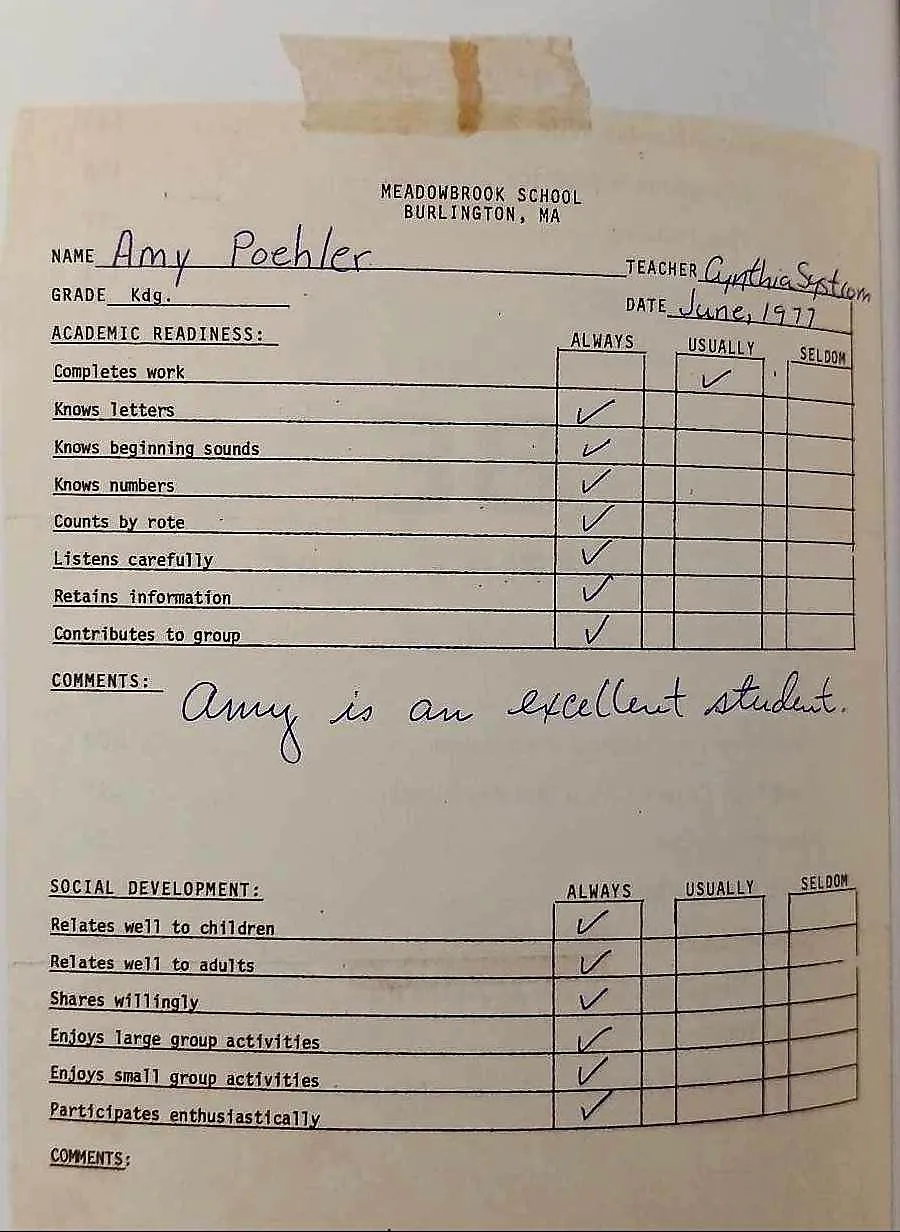 MEADOWBROOK SCHOOL
BURLINGTON, MA
NAME Amy Poehler TEACHER Cynthia Systrom
GRADE Kdg. DATE June, 1977
ACADEMIC READINESS: ALWAYS USUALLY SELDOM
Completes work ✓
Knows letters ✓
Knows beginning sounds ✓
Knows numbers ✓
Counts by rote ✓
Listens carefully ✓
Retains information ✓
Contributes to group ✓
COMMENTS: Amy is an excellent student.
SOCIAL DEVELOPMENT: ALWAYS USUALLY SELDOM
Relates well to children ✓
Relates well to adults ✓
Shares willingly ✓
Enjoys large group activities ✓
Enjoys small group activities ✓
Participates enthusiastically ✓
COMMENTS: